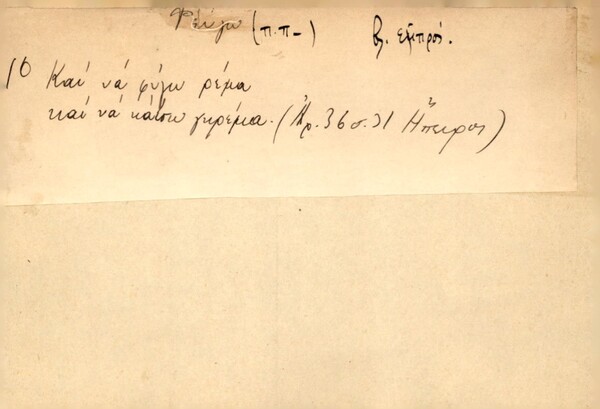 Φεύγω (π.π-) βλ. εμπρός.
10 Καί νά φύγω ρέμα
καί νά κάτσω γκρέμια. (Ἀρ. 36 σ. 31 Ἤπειρος)